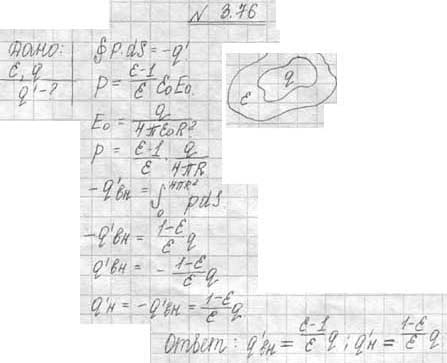 N 3.76
Дано:
ε, q
q' - ?
∮ P.dS = -q'
P = (ε-1)/ε ε₀E₀.
E₀ = q/(4πε₀R²)
P = (ε-1)/ε · q/(4πR)
-q'вн = ∫₀^(4πR²) pds.
-q'вн = (1-ε)/ε q
q'вн = - (1-ε)/ε q
q'н = -q'вн = (1-ε)/ε q
ε q
Ответ: q'вн = (ε-1)/ε q; q'н = (1-ε)/ε q